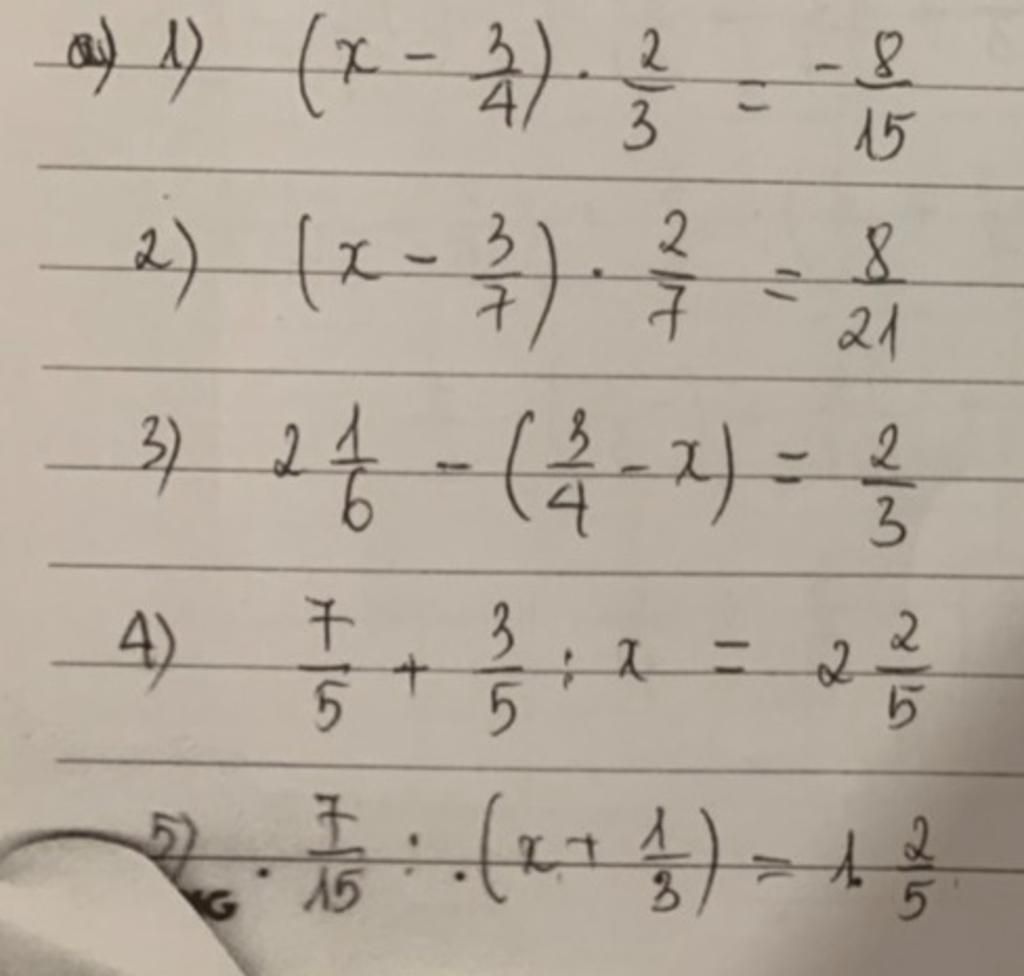 a) 1) (x - 3/4) · 2/3 = -8/15
2) (x - 3/7) · 2/7 = 8/21
3) 2 1/6 - (3/4 - x) = 2/3
4) 7/5 + 3/5 : x = 2 2/5
5) 7/15 : (x + 1/3) = 1 2/5